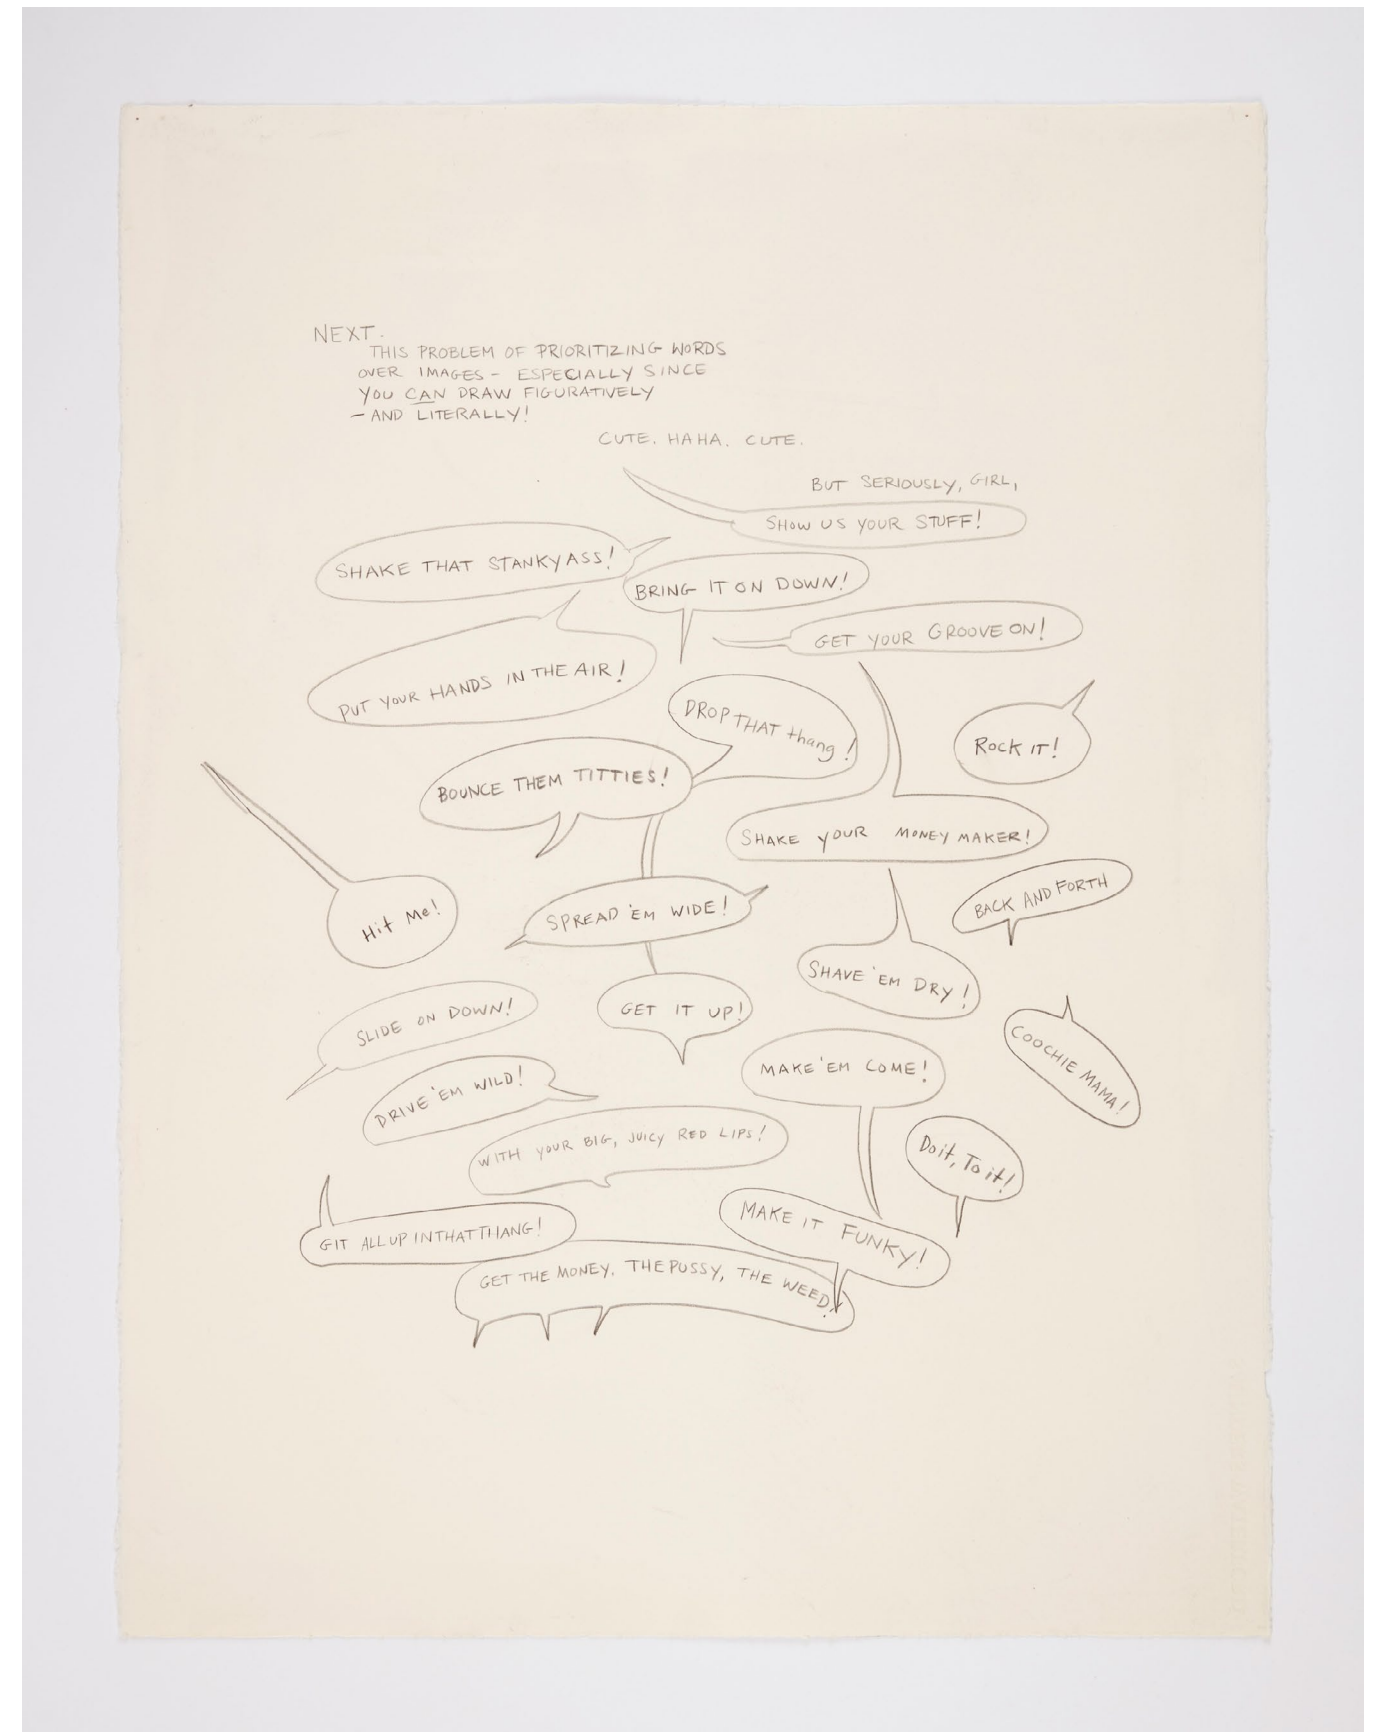 NEXT.
THIS PROBLEM OF PRIORITIZING WORDS
OVER IMAGES - ESPECIALLY SINCE
YOU CAN DRAW FIGURATIVELY
- AND LITERALLY!
CUTE. HAHA. CUTE.
BUT SERIOUSLY, GIRL,
SHOW US YOUR STUFF!
SHAKE THAT STANKY ASS!
BRING IT ON DOWN!
GET YOUR GROOVE ON!
PUT YOUR HANDS IN THE AIR!
DROP THAT thang!
ROCK IT!
BOUNCE THEM TITTIES!
SHAKE YOUR MONEY MAKER!
BACK AND FORTH
Hit Me!
SPREAD 'EM WIDE!
SHAVE 'EM DRY!
SLIDE ON DOWN!
GET IT UP!
COOCHIE MAMA!
MAKE 'EM COME!
DRIVE 'EM WILD!
WITH YOUR BIG, JUICY RED LIPS!
Do it, To it!
GIT ALL UP IN THAT THANG!
MAKE IT FUNKY!
GET THE MONEY. THE PUSSY, THE WEED!